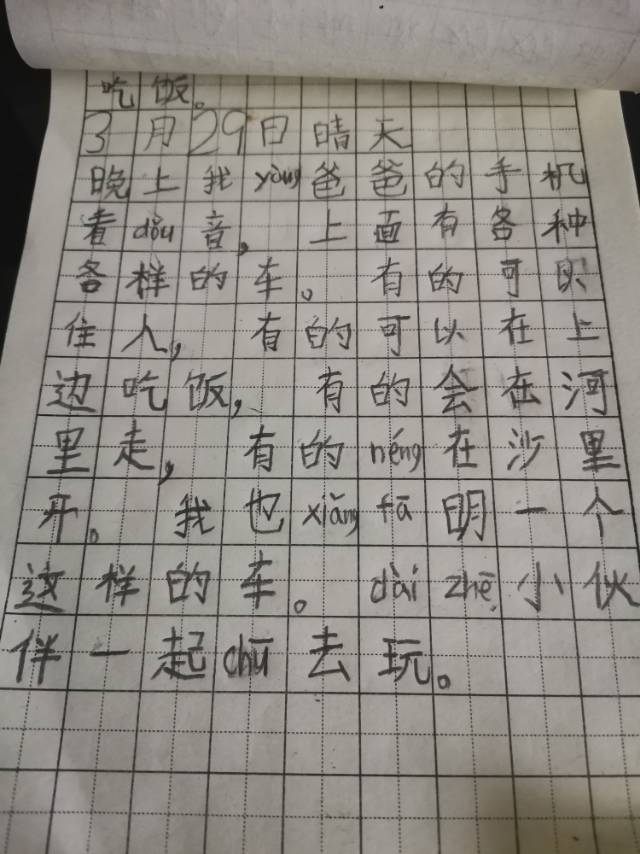 吃饭。
3月29日晴天
晚上我yòng爸爸的手机
看dǒu音，上面有各种
各样的车。有的可以
住人，有的可以在上
边吃饭，有的会在河
里走，有的néng在沙里
开。我也xiǎng fā明一个
这样的车。dài zhē小伙
伴一起chū去玩。